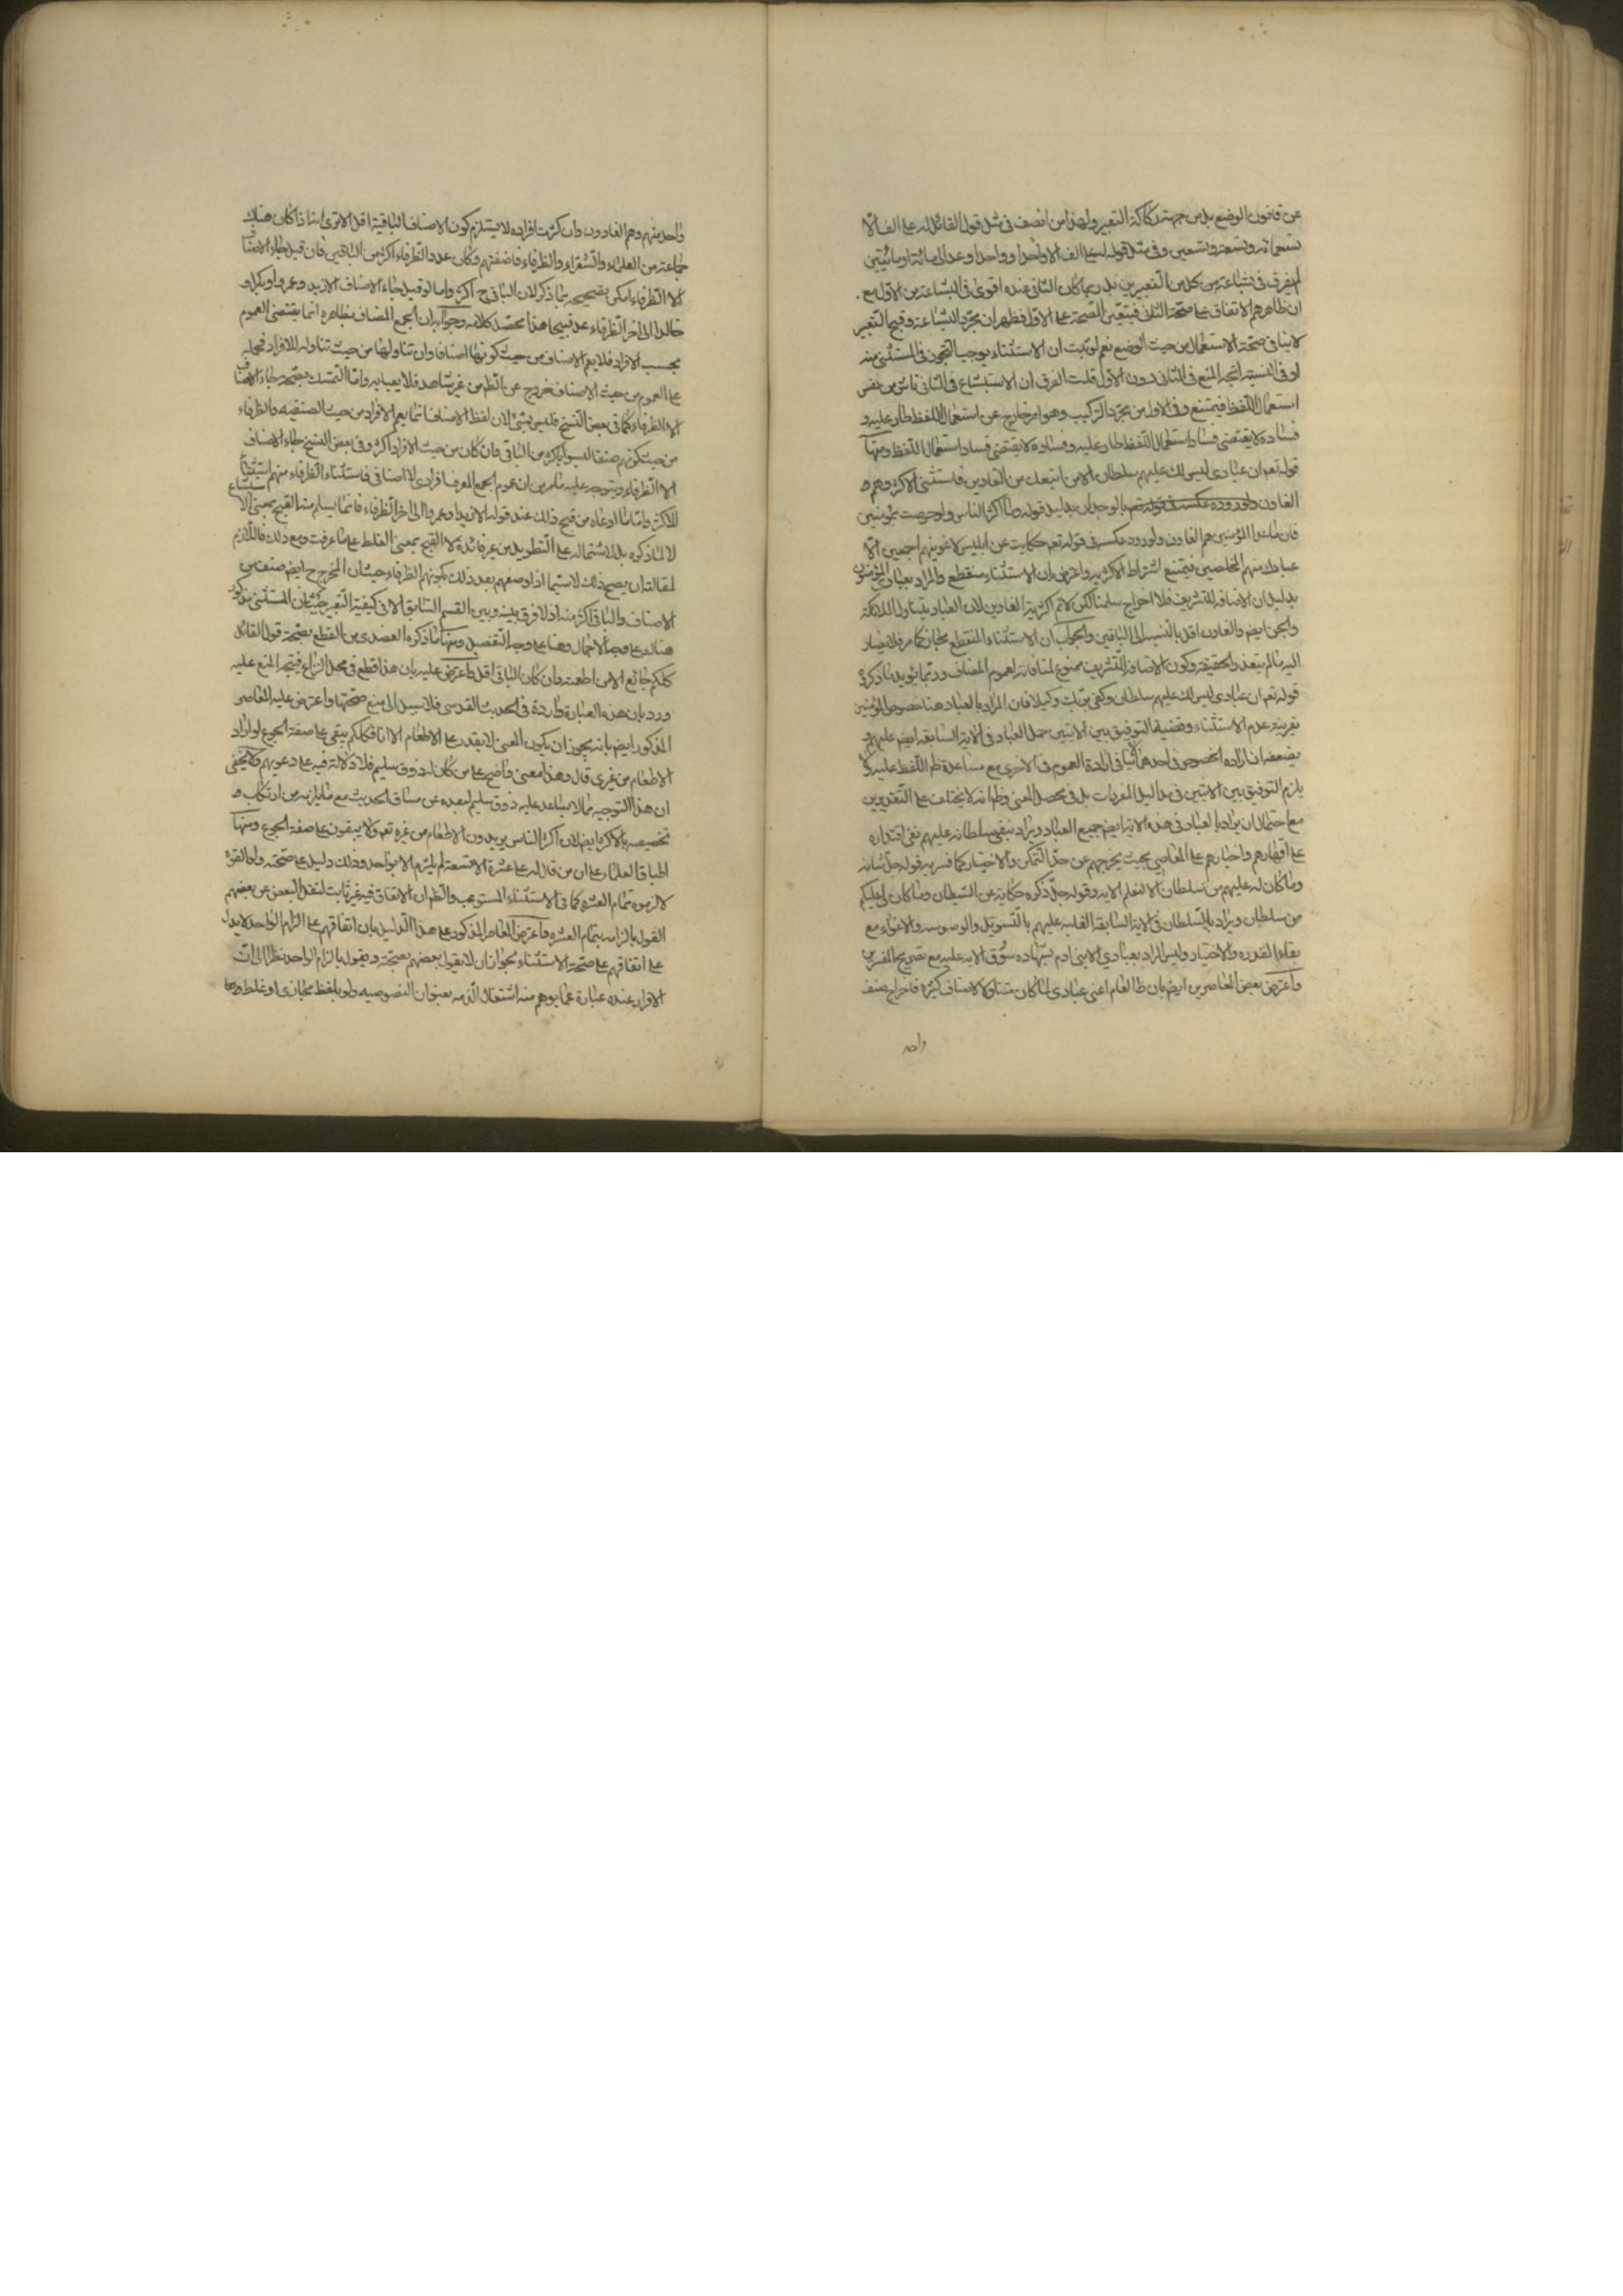 عن قانون الوضع بل من جهة ركاكة التعبير ولهذا من انصف في مثل قول القائل له علي الف الا
تسعمائة وتسعة وتسعين وفي مثل قوله له علي الف الا واحدا وواحدا وعد الى مائة او مائتين
لم يفرق في بشاعة من كل من التعبيرين بل ربما كان الثاني عنده اقوى في البشاعة من الاول مع
ان ظاهرهم الاتفاق على صحة الثاني فيتعين الصحة على الاول فظهر ان مجرد البشاعة وقبح التعبير
لا ينافي صحة الاستعمال من حيث الوضع نعم لو ثبت ان الاستثناء يوجب التجوز في المستثنى منه
او في النسبة اتجه المنع في الثاني دون الاول قلت الفرق ان الاستبشاع في الثاني ناش من نفس
استعمال اللفظ فيمتنع وفي الاول من مجرد التركيب وهو امر خارج عن استعمال اللفظ طار عليه و
فساده لا يقتضي فساد استعمال اللفظ طار عليه وفساده لا يقتضي فساد استعمال اللفظ ومنها
قوله تعم ان عبادي ليس لك عليهم سلطان الا من اتبعك من الغاوين فاستثنى الاكثر وهم
الغاون بالوجدان بدليل قوله وما اكثر الناس ولو حرصت بمؤمنين
فان ما عدا المؤمنين هم الغاون ولورود عكسه في قوله تعم حكاية عن ابليس لاغوينهم اجمعين الا
عبادك منهم المخلصين فيمتنع اشتراط الاكثرية واعترض بان الاستثناء منقطع والمراد بعبادي المؤمنون
بدليل ان الاضافة للتشريف فلا اخراج سلمنا لكن لا نم اكثرية الغاوين لان العباد يتناول الملائكة
والجن ايض والغاون اقل بالنسبة الى الباقين والجواب ان الاستثناء المنقطع مجاز كما مر فلا يصار
اليه ما لم يتعذر الحقيقة وكون الاضافة للتشريف ممنوع لمنافاته لعموم المضاف وربما يؤيد ما ذكر
قوله تعم ان عبادي ليس لك عليهم سلطان وكفى بربك وكيلا فان المراد بالعباد هنا خصوص المؤمنين
بقرينة عدم الاستثناء وقضية التوفيق بين الايتين حمل العباد في الاية السابقة ايض عليهم و
يضعفه ان ارادة الخصوص في احدهما لا ينافي ارادة العموم في الاخرى مع مساعدة ظم اللفظ عليه ولا
يلزم التوفيق بين الايتين في مداليل المفردات بل في محصل المعنى وظم انه لا يختلف على التقديرين
مع احتمال ان يراد بالعباد في هذه الاية ايض جميع العباد ويراد بنفي سلطانه عليهم نفي اقتداره
على اقهارهم واجبارهم على المعاصي بحيث يخرجهم عن حد التمكن والاختيار كما فسر به قوله جل شانه
وما كان له عليهم من سلطان الا لنعلم الاية وقوله جل ذكره حكاية عن الشيطان وما كان لي عليكم
من سلطان ويراد بالسلطان في الاية السابقة الغلبة عليهم بالتسويل والوسوسة والاغواء مع
بقاء القدرة والاختيار وليس المراد بعبادي الا بني ادم بشهادة سوق الاية عليه مع تصريح المفسرين
واعترض بعض المعاصرين ايض بان ظ العام اعني عبادي لما كان متناولا لاصناف كثيرة فاخراج صنف
واحد
واحد منهم وهم الغاوون وان كثرت افراده لا يستلزم كون الاصناف الباقية اقل الا ترى انه اذا كان هناك
جماعة من العلماء والشعراء والظرفاء فاضفتهم وكان عدد الظرفاء اكثر من الباقين فان قيل جاء الاصناف
الا الظرفاء امكن تصحيحه بما ذكر لان الباقي ح اكثر واما لو قيل جاء الاصناف الا زيد وعمرو او بكر و
خالد الى اخر الظرفاء عد قبيحا هذا محصل كلامه وجوابه ان الجمع المضاف بظاهره انما يقتضي العموم
بحسب الافراد فلا يعم الاصناف من حيث كونها اصنافا وان تناولها من حيث تناوله للافراد فحمله
على العموم من حيث الاصناف خروج عن الظم من غير شاهد فلا يعبا به واما التمسك بصحة جاء الاصناف
الا الظرفاء كما في بعض النسخ فليس بشئ لان لفظ الاصناف انما يعم الافراد من حيث الصنفية والظرفاء
من حيث كونهم صنفا ليسوا باكثر من الباقي وان كان من حيث الافراد اكثر وفي بعض النسخ جاء الاصناف
الا الظرفاء ويتوجه عليه ما مر من ان عموم الجمع المعرف افرادي لا اصنافي فاستثناء الظرفاء منهم استثناء
للاكثر واما ما ادعاه من قبح ذلك عند قوله الا زيد او عمروا الى اخر الظرفاء فانما يسلم منه القبح بمعنى الاستبشاع
لا لما ذكره بل لاشتماله على التطويل من غير فائدة لا القبح بمعنى الغلط على ما عرفت ومع ذلك فاللازم
لمقالته ان يصح ذلك لا سيما اذا وصفهم بعد ذلك بكونهم الظرفاء حيث ان المخرج ح ايض صنف من
الاصناف والباقي اكثر منه اذ لا فرق بينه وبين القسم السابق الا في كيفية التعبير حيث ان المستثنى مذكور
هناك على وجه الاجمال وهنا على وجه التفصيل ومنها ما ذكره العضدي من القطع بصحة قول القائل
كلكم جائع الا من اطعمته وان كان الباقي اقل واعترض عليه بان هذا قطع في محل النزاع فيتجه المنع عليه
ورد بان هذه العبارة واردة في الحديث القدسي فلا سبيل الى منع صحتها واعترض عليه المعاصر
المذكور ايض بانه يجوز ان يكون المعنى لا يقدر على الاطعام الا انا فكلكم يبقى على صفة الجوع لو اراد
الاطعام من غيري قال وهذا معنى واضح على من كان له ذوق سليم فلا دلالة فيه على دعويهم ولا يخفى
ان هذا التوجيه مما لا يساعد عليه ذوق سليم لبعده عن مساق الحديث مع ما يلزمه من ارتكاب
تخصيصه بالاكثر ايض لان اكثر الناس يريدون الاطعام من غيره تعم ولا يبقون على صفة الجوع ومنها
اطباق العلماء على ان من قال له علي عشرة الا تسعة لم يلزم الا بواحد وذلك دليل على صحته ولما لغوه
لالزموه تمام العشرة كما في الاستثناء المستوعب والظم ان الاتفاق فيه غير ثابت لنقل البعض عن بعضهم
القول بالزامه بتمام العشرة واعترض المعاصر المذكور على هذا الدليل بان اتفاقهم على الزام الواحد لا يدل
على اتفاقهم على صحة الاستثناء لجواز ان لا يقول بعضهم بصحته ويقول بالزام الواحد نظرا الى ان
الاقرار عنده عبارة عما يوهم منه اشتغال الذمة بعنوان النصوصية ولو بلفظ مجازي او غلط وربما